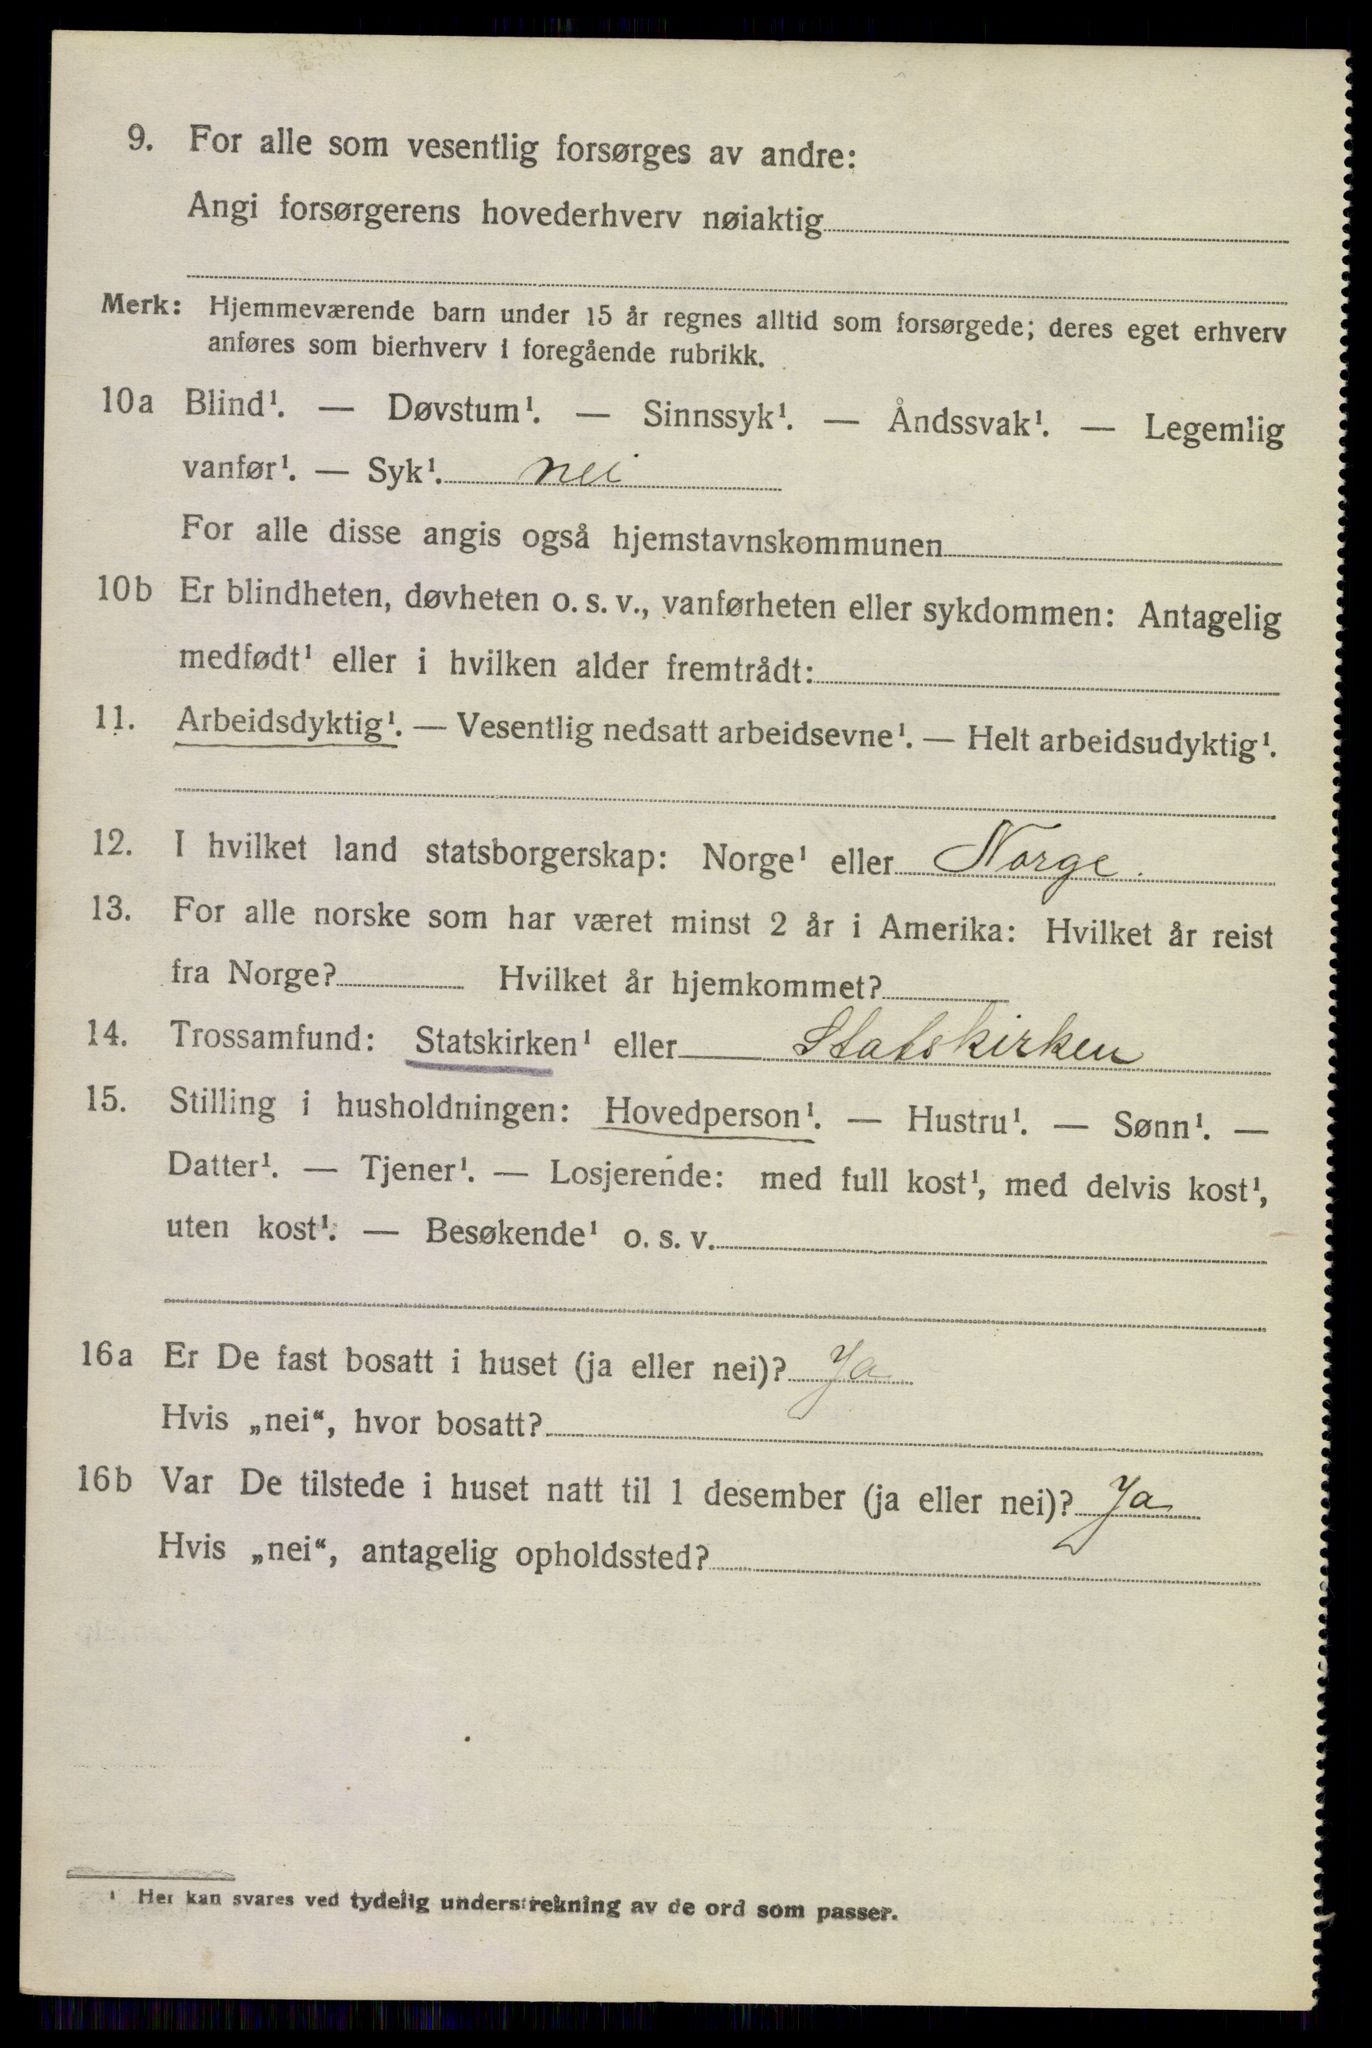 9. For alle som vesentlig forsørges av andre:
Angi forsørgerens hovederhverv nøiaktig
Merk: Hjemmeværende barn under 15 år regnes alltid som forsørgede; deres eget erhverv
anføres som bierhverv i foregående rubrikk.
10a Blind¹. — Døvstum¹. — Sinnssyk¹. — Åndssvak¹. — Legemlig
vanfør¹. — Syk¹. nei
For alle disse angis også hjemstavnskommunen
10b Er blindheten, døvheten o. s. v., vanførheten eller sykdommen: Antagelig
medfødt¹ eller i hvilken alder fremtrådt:
11. Arbeidsdyktig¹. — Vesentlig nedsatt arbeidsevne¹. — Helt arbeidsudyktig¹.
12. I hvilket land statsborgerskap: Norge¹ eller Norge.
13. For alle norske som har været minst 2 år i Amerika: Hvilket år reist
fra Norge? Hvilket år hjemkommet?
14. Trossamfund: Statskirken¹ eller Statskirken
15. Stilling i husholdningen: Hovedperson¹. — Hustru¹. — Sønn¹. —
Datter¹. — Tjener¹. — Losjerende: med full kost¹, med delvis kost¹,
uten kost¹. — Besøkende¹ o. s. v.
16a Er De fast bosatt i huset (ja eller nei)? Ja
Hvis „nei“, hvor bosatt?
16b Var De tilstede i huset natt til 1 desember (ja eller nei)? Ja
Hvis „nei“, antagelig opholdssted?
¹ Her kan svares ved tydelig understrekning av de ord som passer.